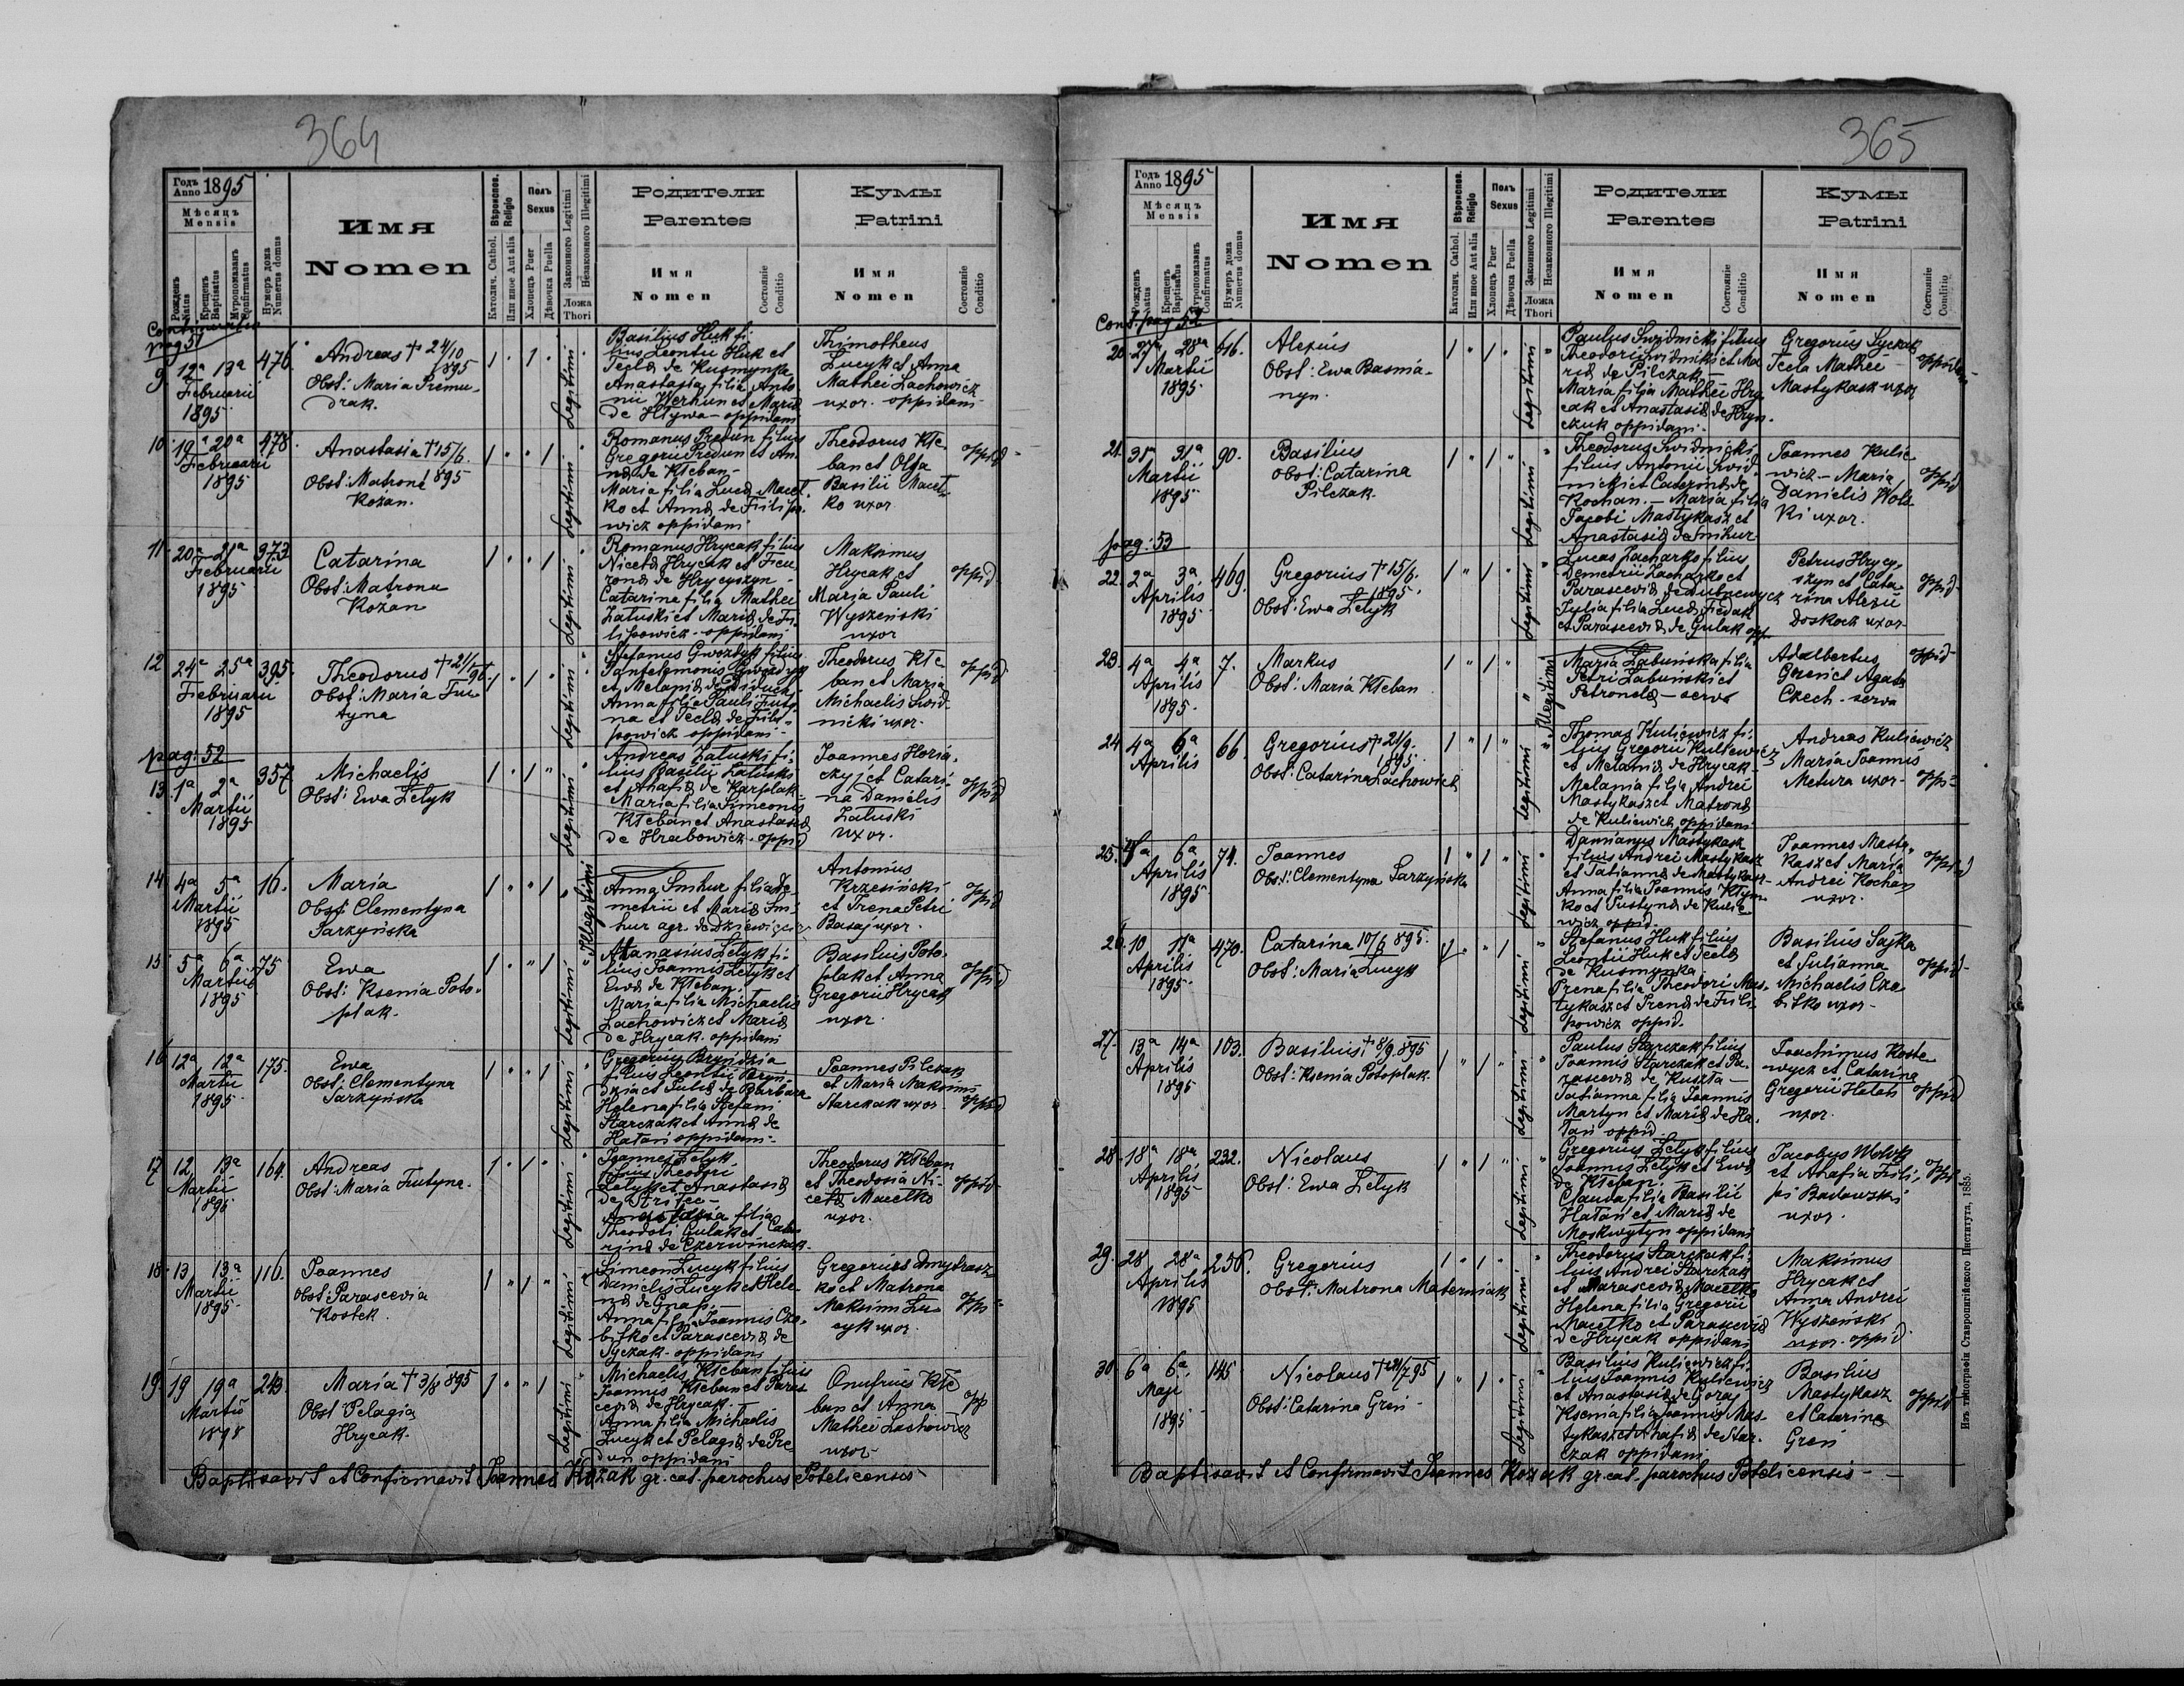 364
Годъ Anno 1895
Мѣсяцъ
Mensis
Рожденъ Natus
Крещенъ Baptisatus
Мѵропомазанъ Confirmatus
Нумеръ дома Numerus domus
Имя
Nomen
Вѣроиспов. Religio
Католич. Cathol.
Или иное Aut alia
Полъ Sexus
Хлопецъ Puer
Дѣвочка Puella
Законного Legitimi
Незаконного Illegitimi
Ложа Thori
Родители
Parentes
Имя
Nomen
Состояніе Conditio
Кумы
Patrini
Имя
Nomen
Состояніе Conditio
Continuatio
pag 51
9. 12a 13a Februarii 1895 476.
Andreas † 24/10 895
Obst: Maria Premu-
drak.
legitimi
Basilius Huk fi-
lius Leontii Huk et
Tecla de Kusmynka
Anastasia filia Anto-
nii Werhun et Maria
de Hlywa - oppidani
Thimotheus
Lucyk et Anna
Mathei Lachowicz
uxor. oppidani
10. 19a 20a Februarii 1895 478.
Anastasia † 15/6. 895
Obst: Matrona
Kozan.
legitimi
Romanus Predun filius
Gregorii Predun et An-
na de Kłeban-
Maria filia Luca Macet-
ko et Anna de Filipo-
wicz oppidani
Theodorus Kłe-
ban et Olga
Basilii Macet-
ko uxor
oppid
11. 20a 21a Februarii 1895 373
Catarina
Obst: Matrona
Kozan
legitimi
Romanus Hrycak filius
Niceta Hrycak et Feu-
rona de Hrycyszyn-
Catarina filia Mathei
Załuski et Maria de Fi-
lipowicz - oppidani
Maksimus
Hrycak et
Maria Pauli
Wyszeński
uxor
oppid
12 24a 25a Februarii 1895 395.
Theodorus † 21/1 96.
Obst: Maria Fru-
tyna
legitimi
Stefanus Gwozdyk filius
Pantelemonis Gwozdyk
et Melania de Diduch-
Anna filia Pauli Fruty-
na et Tecla de Fili-
powicz oppidani-
Theodorus Kłe-
ban et Maria
Michaelis Swid-
nicki uxor-
oppid
pag: 52
13. 1a 2a Martii 1895 357
Michaelis
Obst: Ewa Zelyk
legitimi
Andreas Załuski fi-
lius Basilii Załuski
et Ahafia de Karplak-
Maria filia Simeonis
Kłeban et Anastasia
de Hrabowicz - oppid
Joannes Horia-
czyj et Catari-
na Danielis
Załuski
uxor.
oppid
14 4a 5a Martii 1895 16.
Maria
Obst: Clementyna
Sarzyńska
Illegitimi
Anna Smhur filia De-
metrii et Maria Sm-
hur agr. de Dziewięcierz
Antonius
Krzesiński
et Irena Petri
Basaj uxor.
oppid
15. 5a 6a Martii 1895 75
Ewa
Obst: Ksenia Poto-
plak-
legitimi
Athanasius Zelyk fi-
lius Joannis Zelyk et
Ewa de Kłeban.
Maria filia Michaelis
Lachowicz et Maria
de Hrycak. oppidani
Basilius Poto-
plak et Anna
Gregorii Hrycak
uxor.
oppid
16 12a 12a Martii 1895 175.
Ewa
Obst: Clementyna
Sarzyńska
legitimi
Gregorius Bryndzia
filius Leontii Bryn-
dzia et Julia de Barbara
Helena filia Stefani
Starczak et Anna de
Hatan oppidani-
Joannes Pilczak
et Maria Maksimi
Starczak uxor.
oppid
17 12 13a Martii 1895. 164.
Andreas
Obst: Maria Frutyna.
legitimi
Joannes Zelyk
filius Theodori
Zelyk et Anastasia
Anastasia filia
Theodori Gulak et Cata-
rina de Czerwinczak.
Theodorus Kłeban
et Theodosia Ni-
ceta Macetko
uxor.
oppid
18. 13 13a Martii 1895. 116.
Joannes
Obst: Parascevia
Kostek.
legitimi
Simeon Lucyk filius
Danielis Lucyk et Hele-
na de Gnap. -
Anna filia Joannis Cze-
bitko et Parascevia de
Syczak- oppidani
Gregorius Dmydrasz-
ko et Matrona
Maksimi Lu-
cyk uxor.
opp-
19. 19 19a Martii 213.
Maria † 3/8 895
Obst: Pelagia
Hrycak.
legitimi
Michaelis Kłeban filius
Joannis Kłeban et Paras-
cevia de Hrycak. -
Anna filia Michaelis
Lucyk et Pelagia de Pre-
dun oppidani
Onufrius Kłe-
ban et Anna
Mathei Lachowicz
uxor-
opp
Baptisavit et Confirmavit Joannes Kozak gr. cat. parochus Potelicensis-
365
Годъ Anno 1895
Мѣсяцъ
Mensis
Рожденъ Natus
Крещенъ Baptisatus
Мѵропомазанъ Confirmatus
Нумеръ дома Numerus domus
Имя
Nomen
Вѣроиспов. Religio
Католич. Cathol.
Или иное Aut alia
Полъ Sexus
Хлопецъ Puer
Дѣвочка Puella
Законного Legitimi
Незаконного Illegitimi
Ложа Thori
Родители
Parentes
Имя
Nomen
Состояніе Conditio
Кумы
Patrini
Имя
Nomen
Состояніе Conditio
Cont. pag 52
20. 27a 28a Martii 1895
Alexius
Obst: Ewa Basma-
nyn.
legitimi
Paulus Swidnicki filius
Theodori Swidnicki et Ma-
ria de Pilczak -
Maria filia Mathei Hry-
cak et Anastasia de Hryn-
czuk oppidani.
Gregorius Syczak
Tecla Mathei
Mastykasz uxor
oppidani
21. 31 31a Martii 1895 90.
Basilius
Obst: Catarina
Pilczak.
legitimi
Theodorus Swidnicki
filius Antonii Swid-
nicki et Catarina de
Kochan. - Maria filia
Jacobi Mastykasz et
Anastasia de Smhur
Joannes Kulie-
wicz - Maria
Danielis Wols-
ki uxor.
oppid
pag: 53
22. 2a 3a Aprilis 1895 469.
Gregorius † 15/6. 1895.
Obst: Ewa Zelyk
legitimi
Lucas Zacharko filius
Demetrii Zacharko et
Parascevia de Dubnewycz
Julia filia Luca Fedak
et Parascevia de Gulak opp-
Petrus Hrycy-
szyn et Cata-
rina Alexii
Doskocz uxor-
oppid-
23. 4a 4a Aprilis 1895. 7.
Markus
Obst: Maria Kłeban
Illegitimi
Maria Łabuńska filia
Petri Łabuński et
Petronela - serva
Adalbertus
Gren et Agata
Czech - serva
oppid-
24 4a 6a Aprilis 66
Gregorius † 21/9. 1895.
Obst: Catarina Lachowicz
legitimi
Thomas Kuliewicz fi-
lius Gregorii Kuliewicz
et Melania de Hrycak-
Melania filia Andrei
Mastykasz et Matrona
de Kuliewicz oppidani
Andreas Kuliewicz
Maria Joannis
Metura uxor-
opp-
25. 4a 6a Aprilis 1895 74.
Joannes
Obst: Clementyna Sarzyńska
legitimi
Damianus Mastykasz
filius Andrei Mastykasz
et Tatianna de Mastykasz-
Anna filia Joannis Kłym-
ko et Justyna de Kulie-
wicz oppid.
Joannes Masty-
kasz et Maria
Andrei Kochan
uxor.
oppid
26. 10 11a Aprilis 1895. 470.
Catarina 10/6 895.
Obst: Maria Lucyk
legitimi
Stefanus Huk filius
Leontii Huk et Tecla
de Kusmynka
Irena filia Theodori Mas-
tykasz et Irena de Fili-
powicz oppid.
Basilius Sajka
et Julianna
Michaelis Cze-
bitko uxor-
oppid-
27. 13a 14a Aprilis 1895 103.
Basilius † 8/9. 895
Obst: Ksenia Potoplak.
legitimi
Paulus Starczak filius
Joannis Starczak et Pa-
rascevia de Kuszta -
Tatianna filia Joannis
Martyn et Maria de Ha-
tan oppid-
Joachimus Koste-
wycz et Catarina
Gregorii Hatan
uxor.
oppid
28- 18a 18a Aprilis 1895 232.
Nicolaus
Obst: Ewa Zelyk
legitimi
Gregorius Zelyk filius
Joannis Zelyk et Ewa
de Kłeban. -
Claudia filia Basilii
Hatan et Maria de
Moskwytyn oppidani
Jacobus Wowk
et Ahafia Fili-
pi Badowski
uxor.
opp
29. 28 28a Aprilis 1895 256.
Gregorius
Obst: Matrona Materniak
legitimi
Theodorus Starczak fi-
lius Andrei Starczak
et Parascevia Macetko
Helena filia Gregorii
Macetko et Parascevia
de Hrycak oppidani
Maksimus
Hrycak et
Anna Andrei
Wyszeński
uxor. oppid.
30 6a 6a Maji 1895 145
Nicolaus † 21/7 95
Obst: Catarina Gren-
legitimi
Basilius Kuliewicz fi-
lius Joannis Kuliewicz
et Anastasia de Goraj
Ksenia filia Joannis Mas-
tykasz et Ahafia de Star-
czak oppidani
Basilius
Mastykasz
et Catarina
Gren
oppid
Baptisavit et Confirmavit Joannes Kozak gr. cat. parochus Potelicensis - -
Изъ типографіи Ставропигійского Института, 1885.